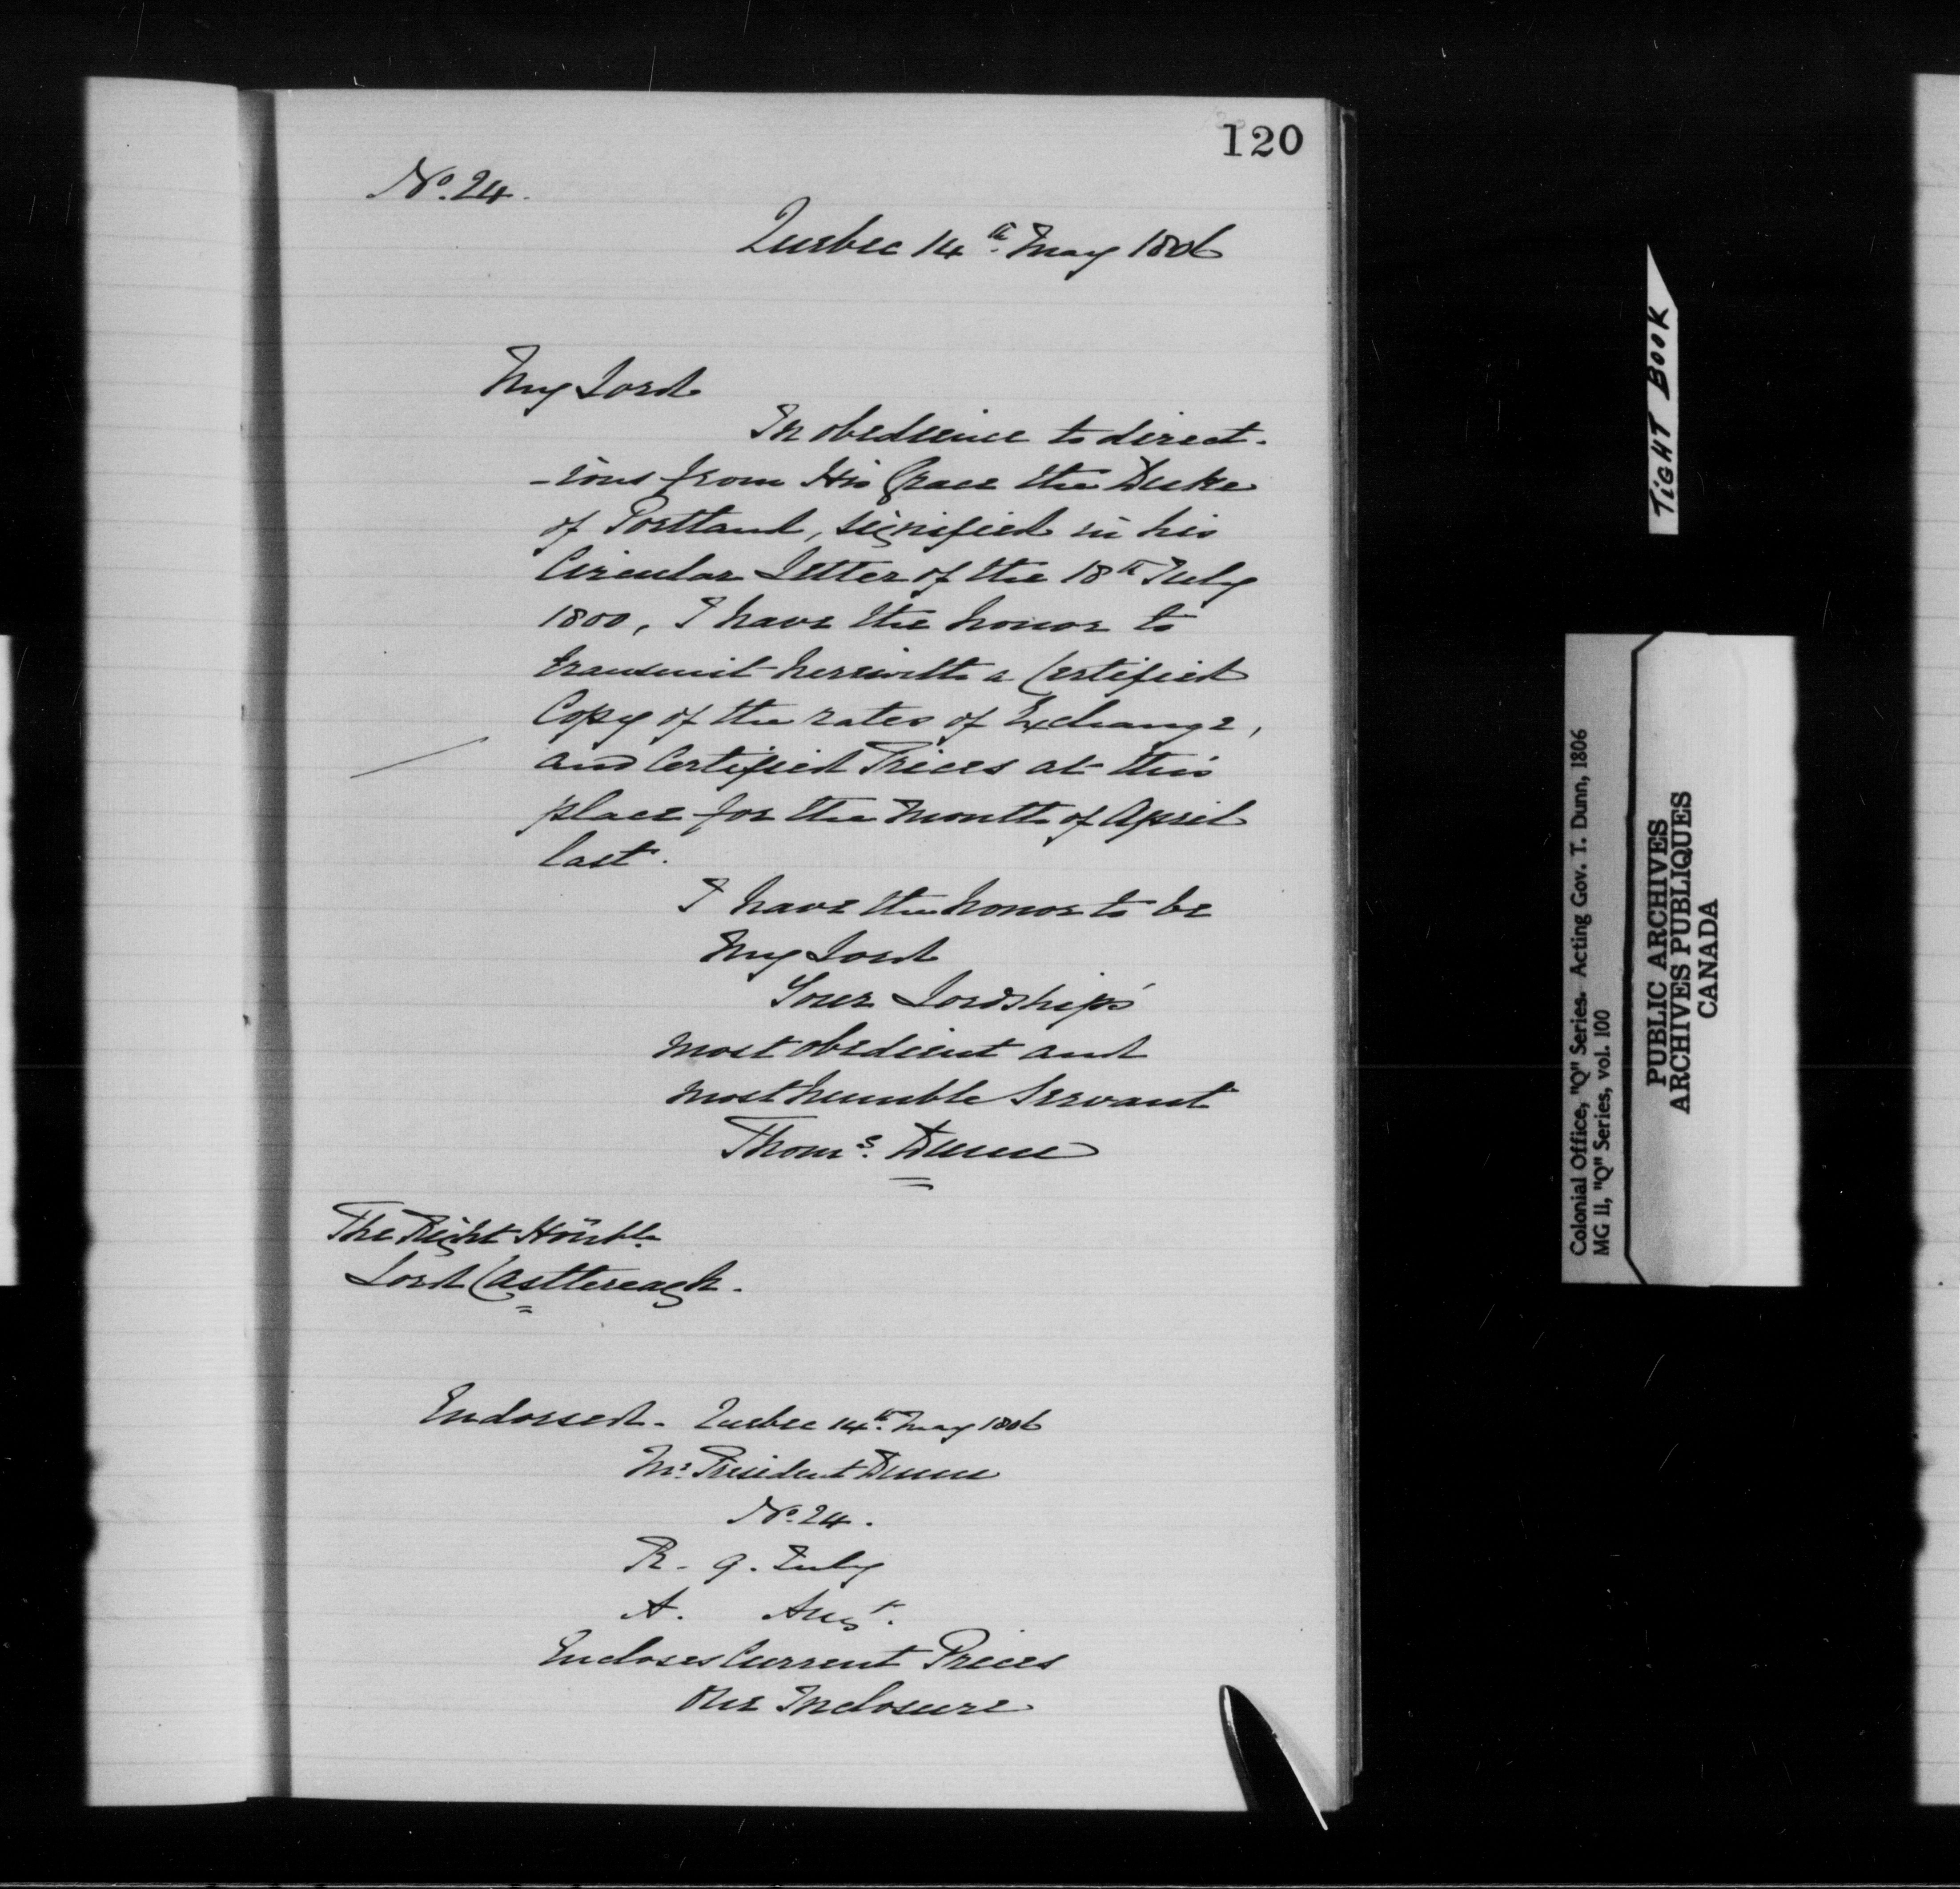 120
No. 24.
Quebec 14th. May 1806
My Lord
In obedience to direct-
-ions from His Grace the Duke
of Portland, signified in his
Circular Letter of the 18th July
1800, I have the honor to
transmit herewith a Certified
Copy of the rates of Exchange,
and Certified Prices at this
place for the month of April
last.
I have the honor to be
My Lord
Your Lordship's
most obedient and
most humble Servant
Thoms. Dunn
The Right Honble
Lord Castlereagh.
Endorsed. Quebec 14th. May 1806
Mr. President Dunn
No. 24.
R. 9. July
A. Augt.
Encloses Current Prices
One Inclosure
TIGHT BOOK
Colonial Office, "Q" Series. Acting Gov. T. Dunn, 1806
MG 11, "Q" Series, vol. 100
PUBLIC ARCHIVES
ARCHIVES PUBLIQUES
CANADA